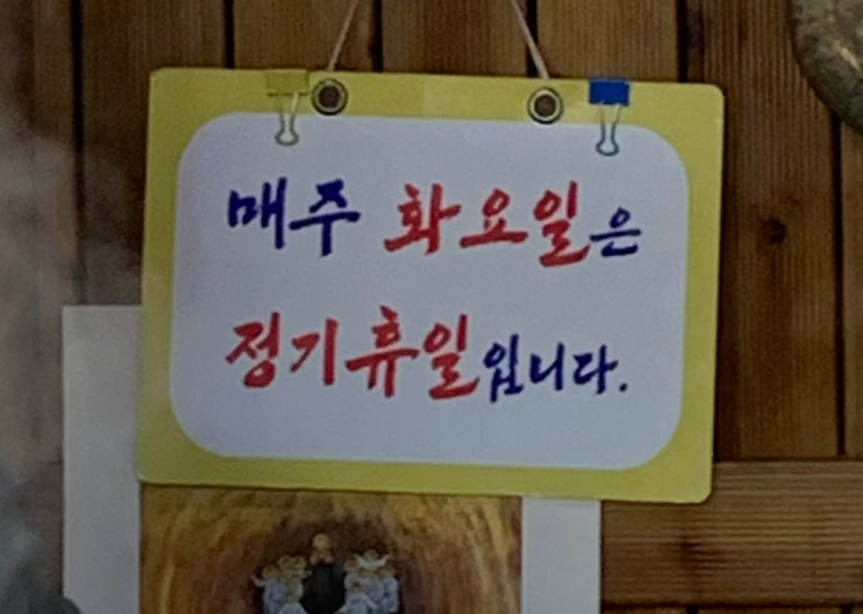 매주 화요일은
정기휴일입니다.